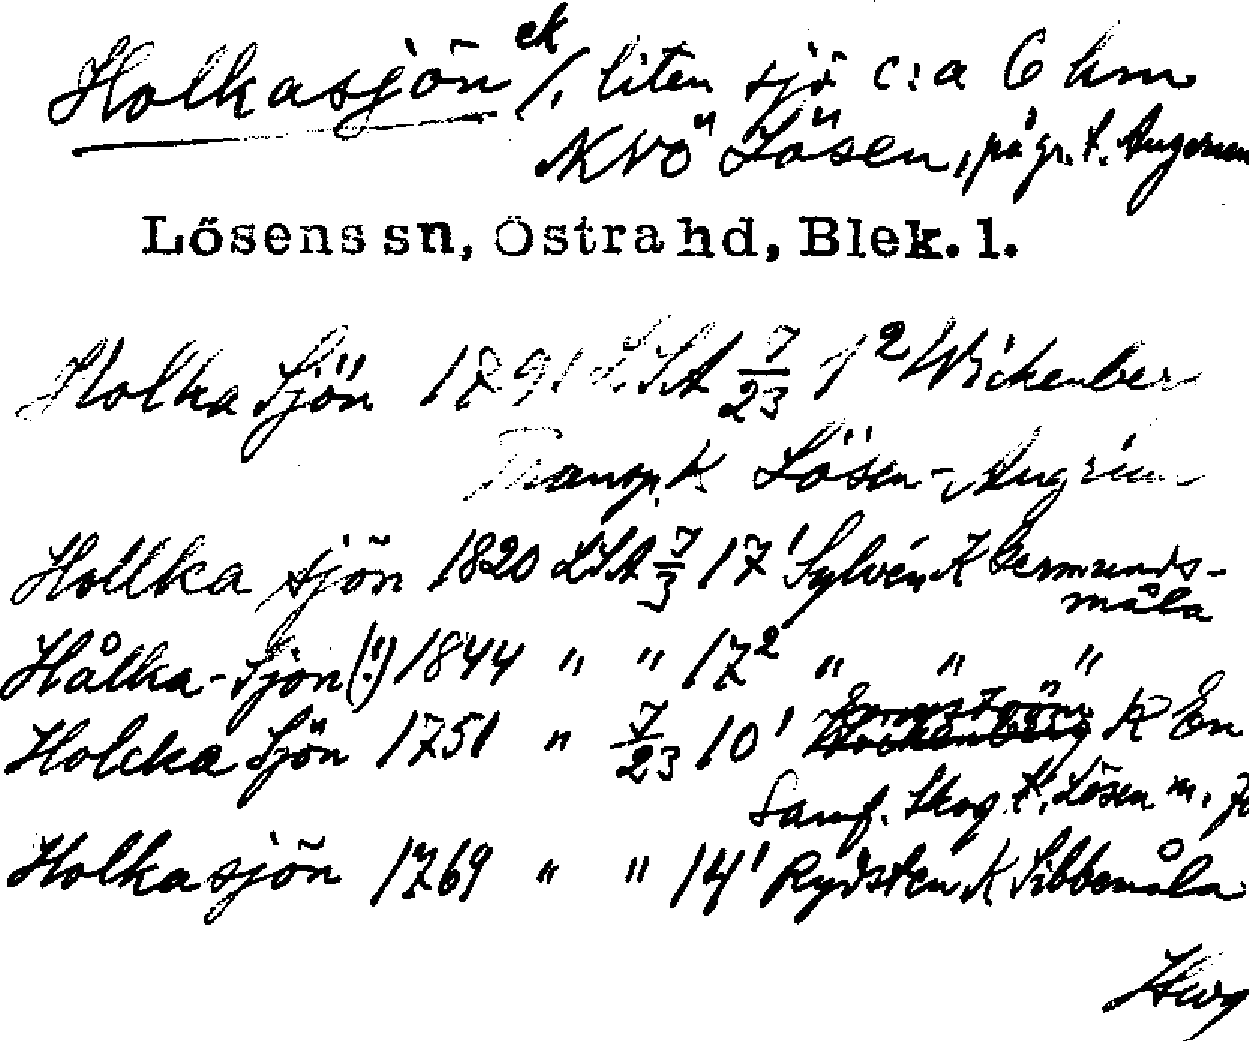 Holkasjön ek/, liten sjö c:a 6 km
NNÖ Lösen, på gr. t. Augerum
Lösens sn, Östra hd, Blek. l.
Holka Sjön 1791 LSA 7/23 1² Wickenber
Transp. K Lösen - Augrum
Hollka sjön 1820 LSA 7/3 17' Sylvén K Germunds-
måla
Hålka-Sjön (!) 1844 " " 17² " " "
Holcka Sjön 1751 " 7/23 10' K En
Samf. Skog t. Lösen m.
Holka sjön 1769 " " 14' Rydsten K Sibbemåla